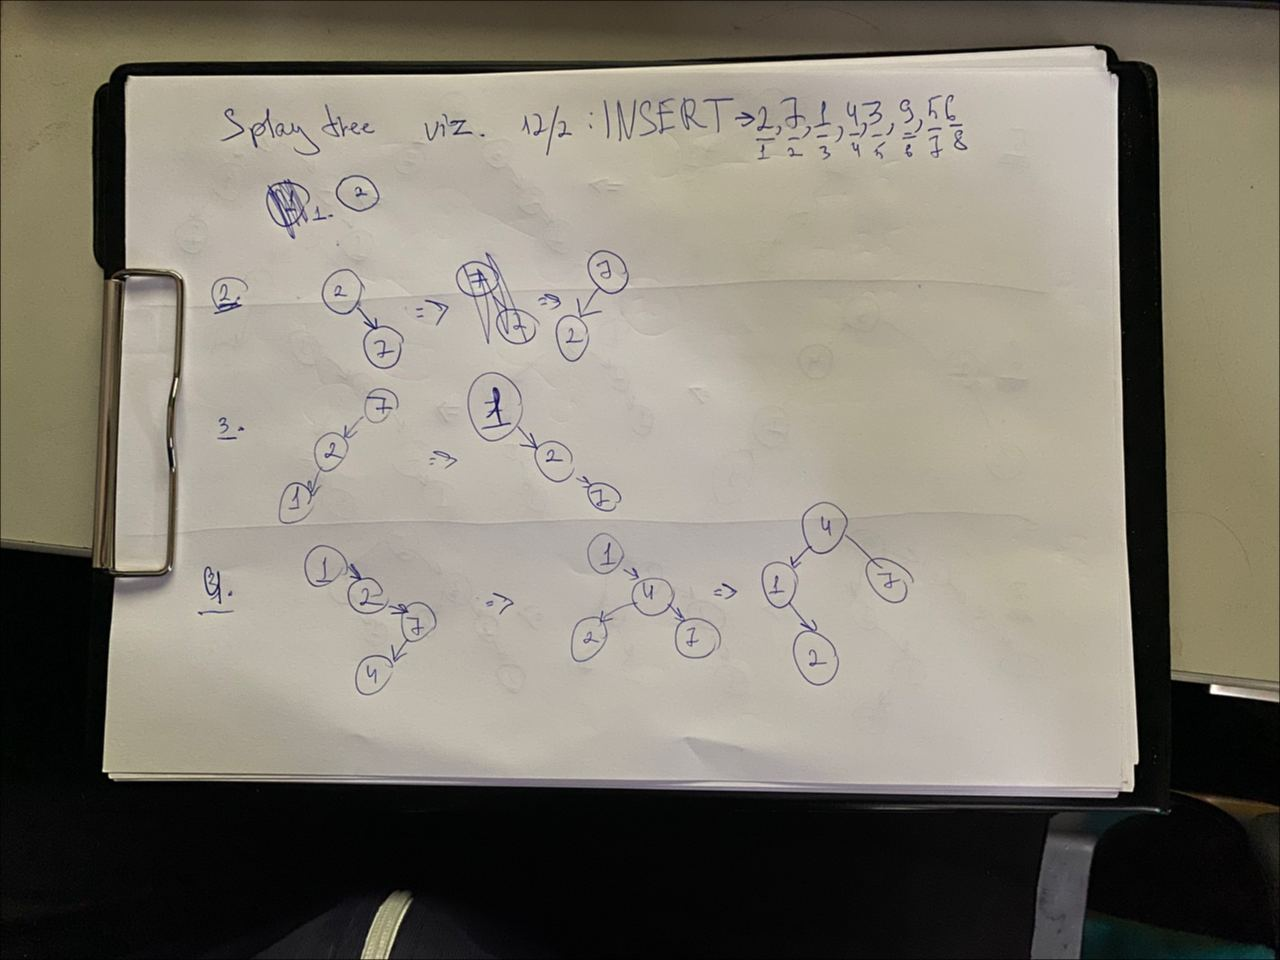 Splay tree viz. 12/2 : INSERT → 2, 7, 1, 4, 3, 9, 5 6
1 2 3 4 5 6 7 8
1. 2
2. 2 7 ⇒ ⇒ 7 2
3. 7 2 1 ⇒ 1 2 7
4. 1 2 7 4 ⇒ 1 4 2 7 ⇒ 4 1 7 2